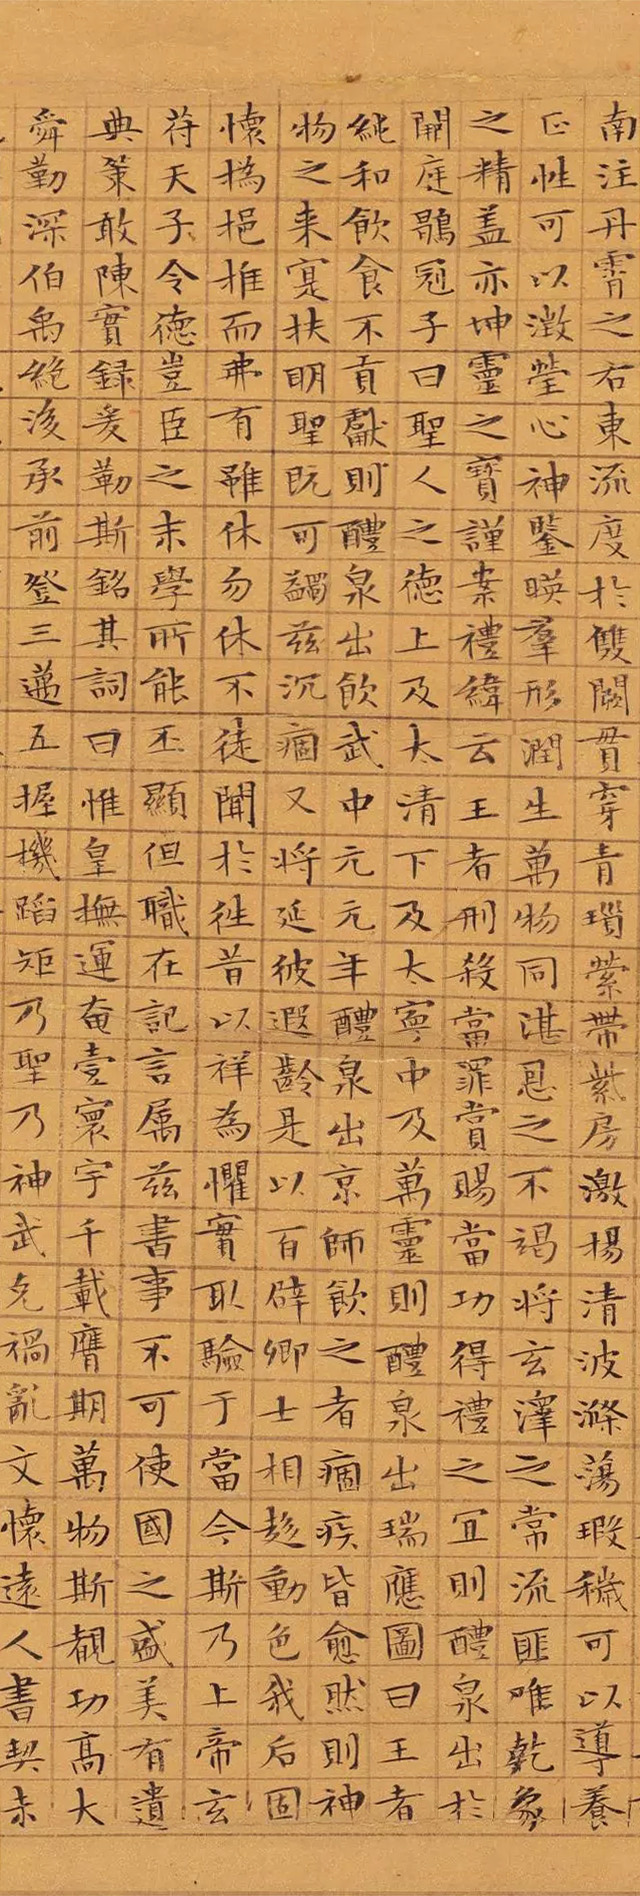 南注丹霄之右東流度於雙闕貫穿青瑣縈帶紫房激揚清波滌蕩瑕穢可以導養
正性可以澂瑩心神鑒暎羣形潤生萬物同湛恩之不竭将玄澤之常流匪唯乾象
之精盖亦坤靈之寶謹案禮緯云王者刑殺當罪賞賜當功得禮之宜則醴泉出於
開庭鶡冠子曰聖人之德上及太清下及太寧中及萬靈則醴泉出瑞應圖曰王者
純和飲食不貢獻則醴泉出飲武中元元年醴泉出京師飲之者痼疾皆愈然則神
物之来寔扶明聖既可蠲茲沉痼又将延彼遐齡是以百辟卿士相趍動色我后固
懷撝挹推而弗有雖休勿休不徒聞於往昔以祥為懼實取驗于當今斯乃上帝玄
符天子令德豈臣之末學所能丕顯但職在記言属茲書事不可使國之盛美有遺
典策敢陳實録爰勒斯銘其詞曰惟皇撫運奄壹寰宇千載膺期萬物斯覩功高大
舜勤深伯禹絶後承前登三邁五握機蹈矩乃聖乃神武克禍亂文懷遠人書契未